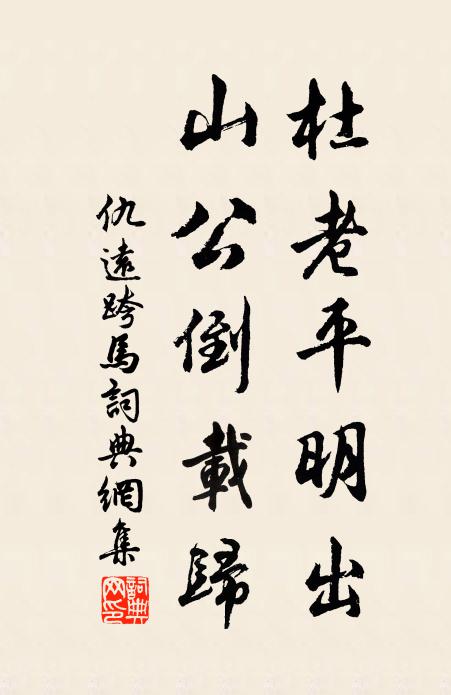 杜老平明出
山公倒載歸
仇遠跨馬詞典網集
詞典网印